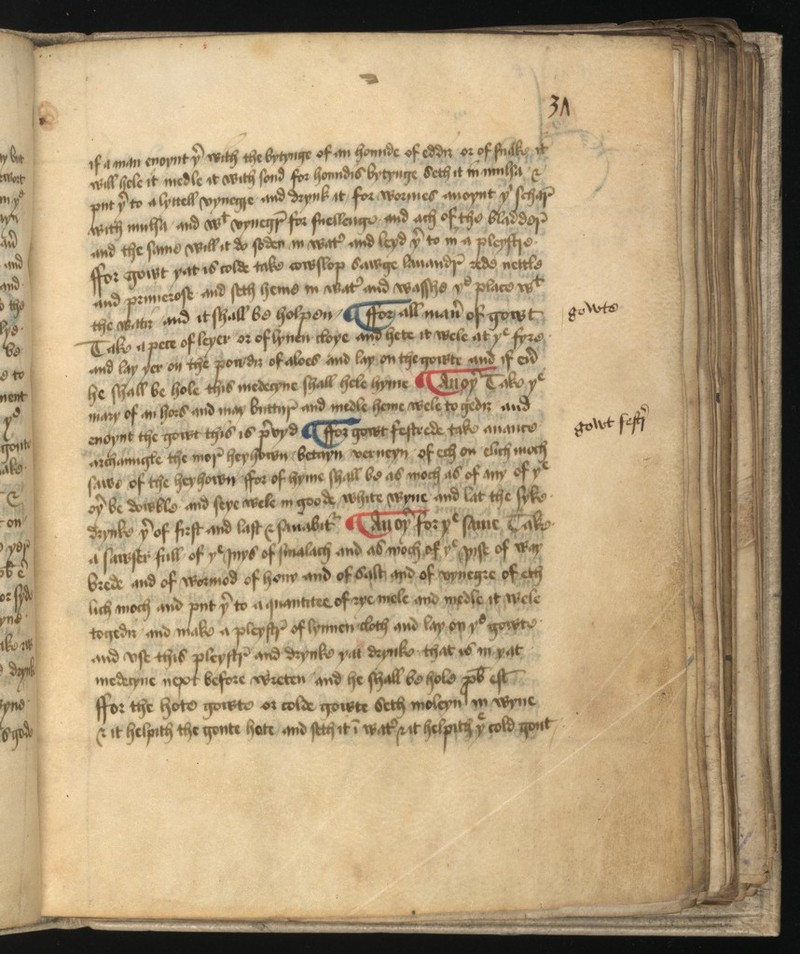 31
if a man enoynt yͬ with the bytynge of an hounde of eddir or of snake it
will hele it medle it with sond for houndis bytynge Seth it in mulsa &
put yͬ to a lyttell vynegre and drynk it for wormes anoynt yͬ
with mulsa and wͭ vynegr for suellenge and ach of the bladder
and the same will it do soden in wat and leyd yͬ to in a pleystre
ffor gowt yat is colde take cowslop sawge lauandr rede nettle
and primerose and seth heme in wat and wasshe yͤ place wͭ
the watir and it shall be holpen ¶ ffor all man of gowt
Take a pece of leyer or of lynen cloye and hete it wele at yͤ fyre
and lay yer on the powdr of aloes and lay on the gowte and if
he shall be hole this medecyne shall hele hyme ¶ An oyͬ Take yͤ
mary of an hors and may buttur and medle heme wele to gedir and
enoynt the gowt this is pvyd ¶ ffor gowt festrede take auance
archanngle the mor heyhown betayn verueyn of ech on elich moch
sawe of the heyhown ffor of hyme shall be as moch as of any of yͤ
oyͬ be dowble and seye wele in goode white wyne and lat the syke
drynke yͬ of first and last & sanabit ¶ An oyͬ for yͤ same Take
a sawser full of yͤ juys of smalach and as moch of yͤ of
brede and of wormod of hony and of salt and of vynegre of ech
lich moch and put yͬ to a quantite of rye mele and medle it wele
togedir and make a pleystr of lynnen cloth and lay on yͤ gowte
and vse this pleystr and drynke yat drynke that is in yat
medecyne next before wreten and he shall be hole pb est
ffor the hote gowte or colde gowte Seth moleyn in wyne
& it helpith the goute hote and seth it i wat & it helpith yͤ cold gout
gowte
gowt festr